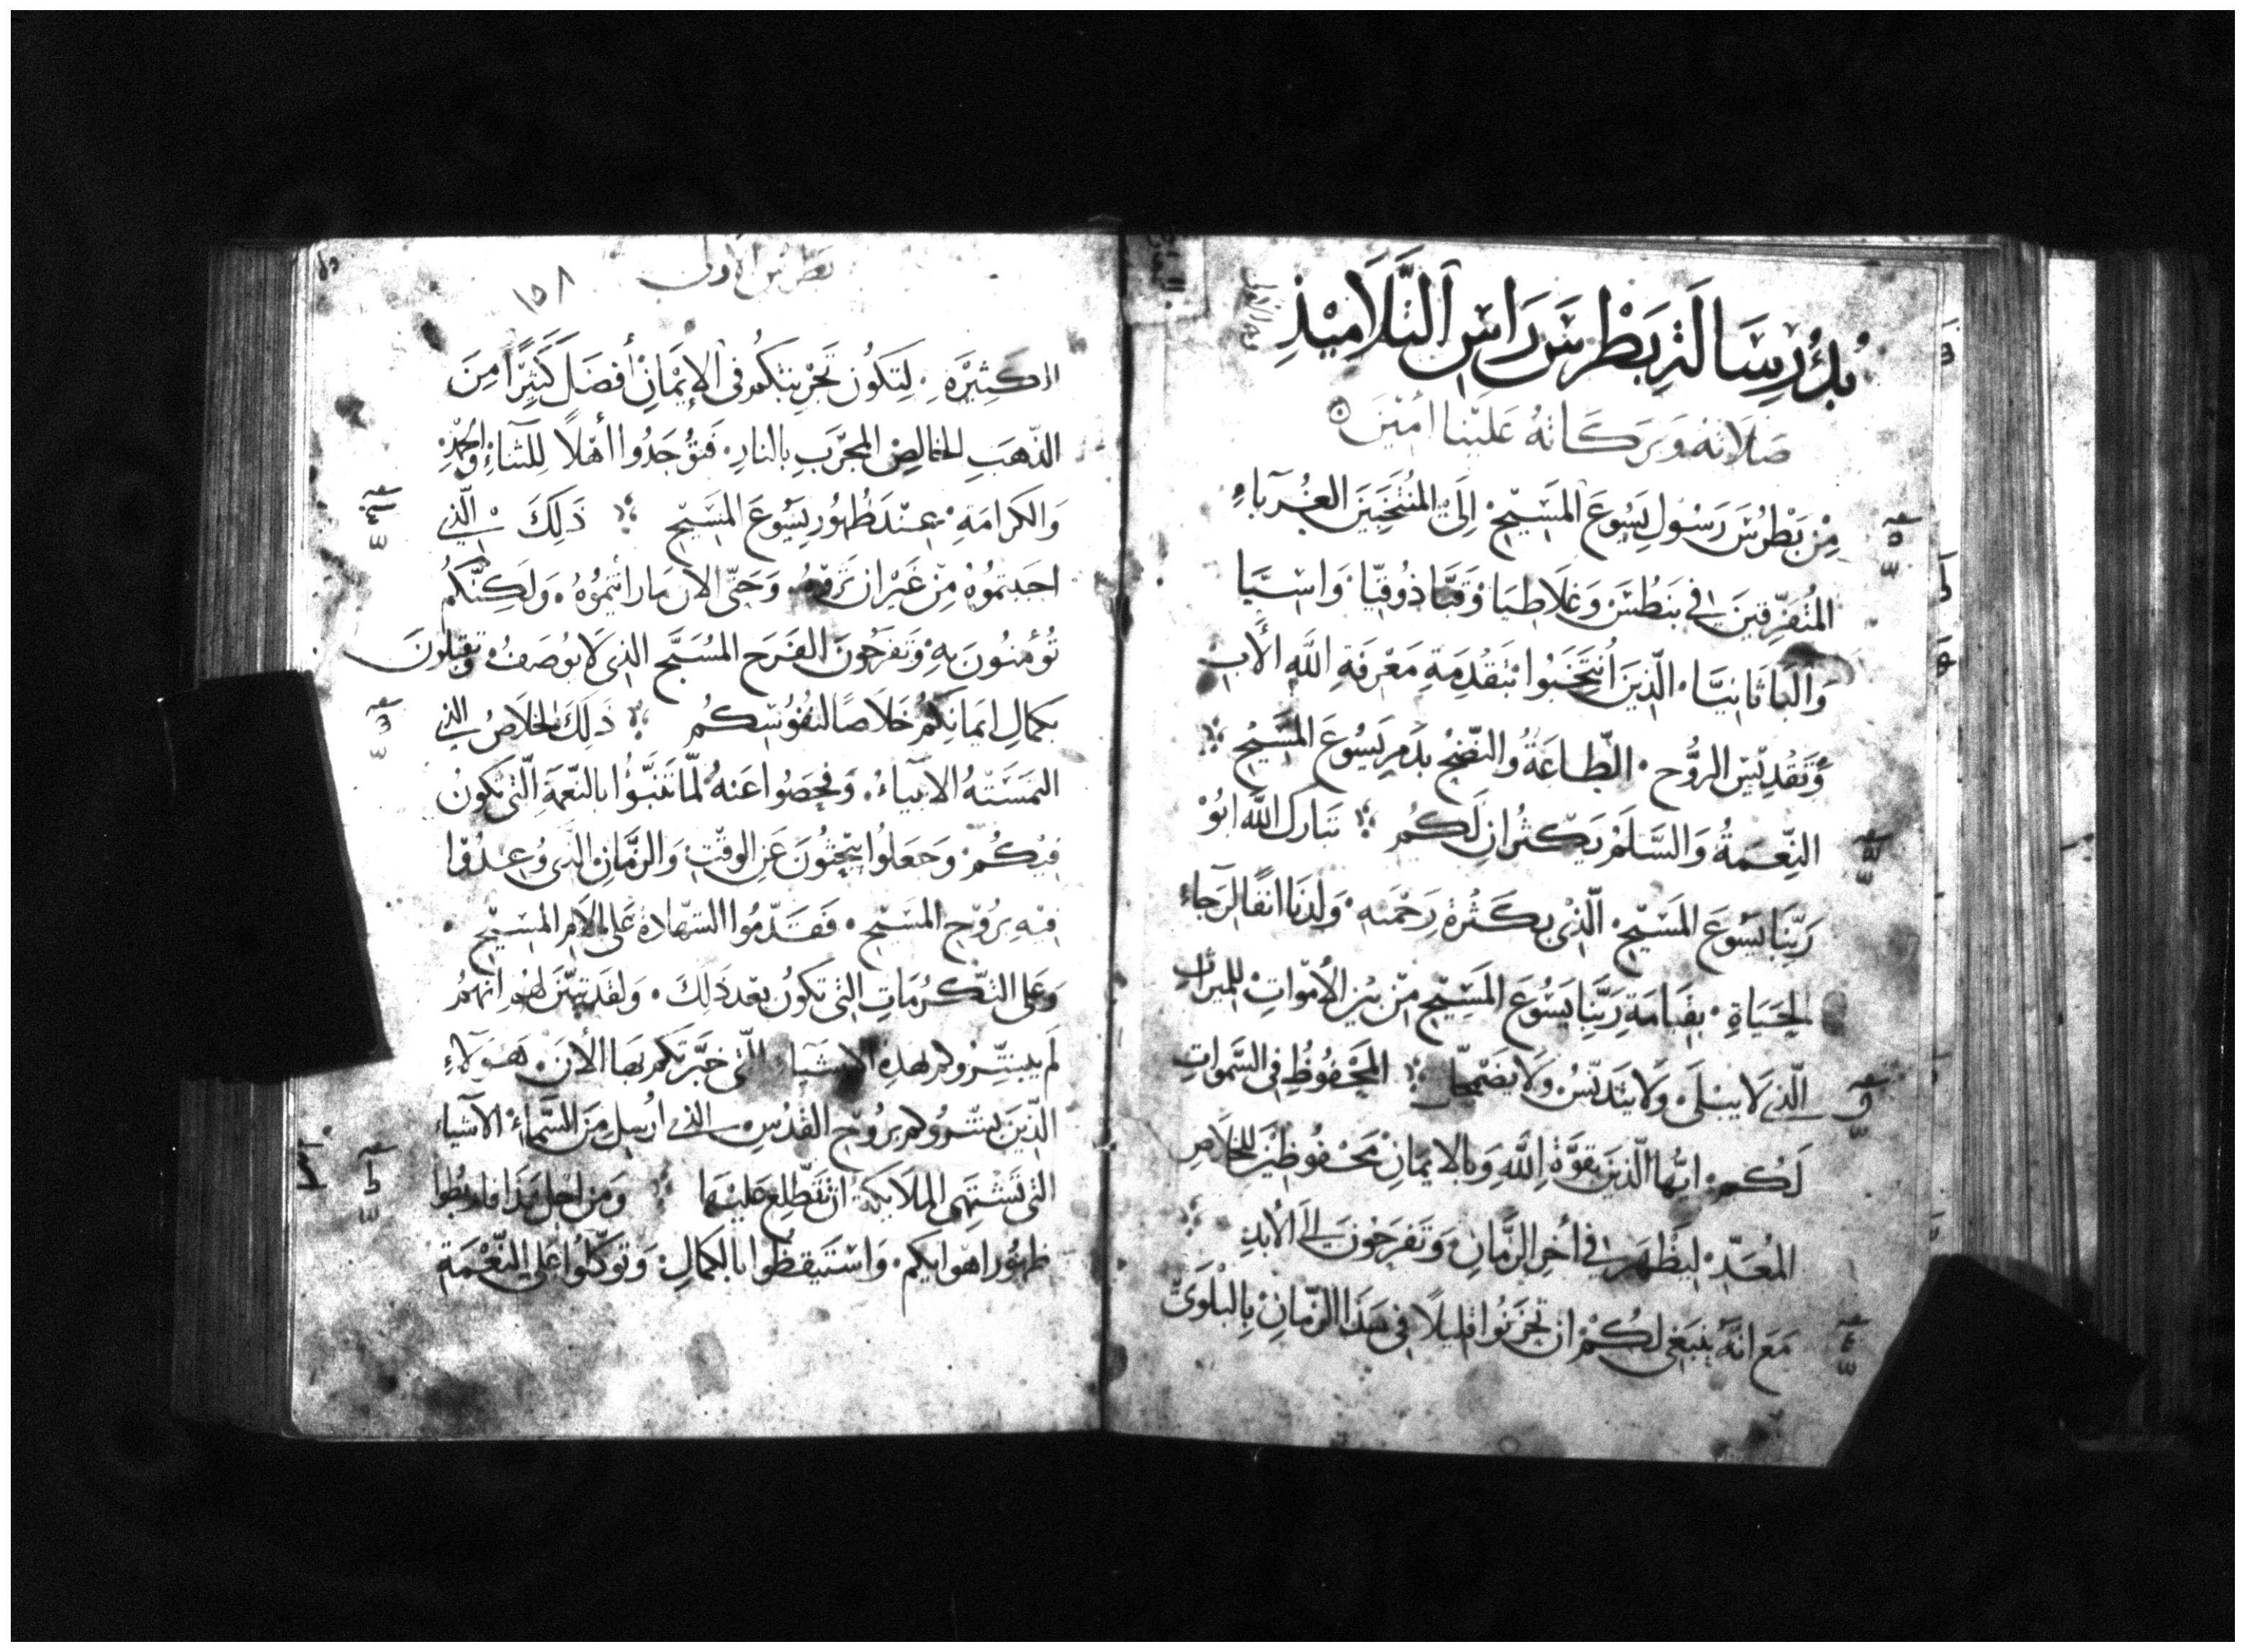 بُدُؤُ رِسَالَةِ بَطْرُسَ رَاسِ التَّلَامِيْذِ
صَلَاتهُ وَبَرَكَاتهُ عَلَيْنا امِيْنَ
مِنْ بَطْرُسَ رَسُولِ يَسُوعَ المَسَيْحِ إِلَىَ المُنتَخَبَيَن الغُربَآءِ
المُتَفَرِّقينَ في بَنطُسَ وَغَلَاطيَا وَقَبَّاذُوقيَّا وَاسْيَّا
وَالبَاثَانيَّا الَّذينَ انتَخَبُوا بتَقْدِمَةِ مَعْرفَةِ اللَّهِ الأَبِ
وَتَقْدِيْسِ الرُّوحِ الطَّاعَةُ والنَّضْحُ بدَمِ يَسُوعَ المَسَيْحِ
النِّعمَةُ وَالسَّلَمُ يَكثُرانِ لَكُم تبَارَكَ اللَّه ابُوْ
رَبِّنَا يَسُوعَ المَسَيْحِ الَّذِيْ بكَثْرةِ رَحْمَته وَلدَنَا انفًا لرَجَآءِ
الحَيَاةِ بقيَامَةِ رَبِّنَا يَسُوعَ المَسَيْحِ مِنْ بَيْنِ الأمْوَاتِ للميرَاثِ
الَّذي لَا يَبْلَى وَلَا يَتَدَنَّسُ وَلَا يَضْمَحلُّ المَحْفُوظِ في السَّمَواتِ
لَكُم ايُّهَا الَّذينَ بقوَّةِ اللَّهِ وَبالايمَانِ مَحْفُوظِيْنَ للخلَاصِ
المُعَدّ ليَظْهَرَ في اخِرِ الزَّمَانِ وَتَفرَحُونَ الَى الأبَدِ
مَعَ انَّه يَنبَغي لكُمْ ان تَحْزَنُوا قليلًا في هَذَا الزَّمَانِ بالبَلْوَىَ
بطرس الاولى
١٥٨
الكَثِيْرَةِ لِتَكُون تَجْرِبَتكُم في الإيْمَانِ أَفضَلَ كَثِيْرًا مِنَ
الذَّهَبِ الخَالِصِ المجَرَّبِ بالنارِ فَتُوْجَدُوا أَهْلًا لِلثَنَاءِ وَالحَمْدِ
وَالكَرَامَةِ عِندَ ظُهُورِ يَسُوعَ المَسَيْحِ ذَلِكَ الَّذي
احبَبتمُوْهُ مِنْ غَيْرِ ان تَرَوْهُ وَحَتَّى الان مَا رَايتمُوْهُ وَلَكِنَّكُم
تُؤمنُونَ بِهِ وَتَفرَحُونَ الفَرَحَ المُسَبَّحَ الذي لَا يُوصَفُ وَتقبَلونَ
بكمَالِ ايمَانِكُم خَلَاصًا لنفُوْسِكُم ذَلِكَ الخَلَاصُ الذي
التمَسَتْهُ الانبيَاءُ وَفحَصُوا عَنهُ لَمّا تَنَبَّؤا بالنِّعمَةِ الَّتي تكونُ
فيكُمْ وَجَعَلُوا يَبحثُونَ عَن الوَقْتِ وَالزَّمَانِ الذي وُعِدُوْا
فيْهِ برُوْحِ المَسَيْحِ فَقَدَّمُوا الشَهَادَةَ عَلَى الامِ المَسَيْحِ
وَعَلى التَّكرُمَاتِ التي تَكُونُ بَعْدَ ذَلِكَ وَلقَد تبيَّنَ لَهُم انَّهُم
لَم يبَشِّرُوكُم بهَذِهِ الاشيَاءِ الَّتي خبَّرتكُم بهَا الأَنَ هَؤلَاءِ
الَّذينَ بشَّرُوكُم برُوْحِ القُدُسِ الذي ارُسِلَ مِنَ السَّمَاءِ الاَشيَاء
التي تَشْتَهي الملَايكَة ان تَطَّلعَ عَليْهَا وَمنْ اجلِ هَذَا فاربطُوا
ظهُورَ اهوَايكُم وَاسْتَيقظُوا بالكمَالِ وَتوكَّلُوا عَلى النِّعْمَةِ